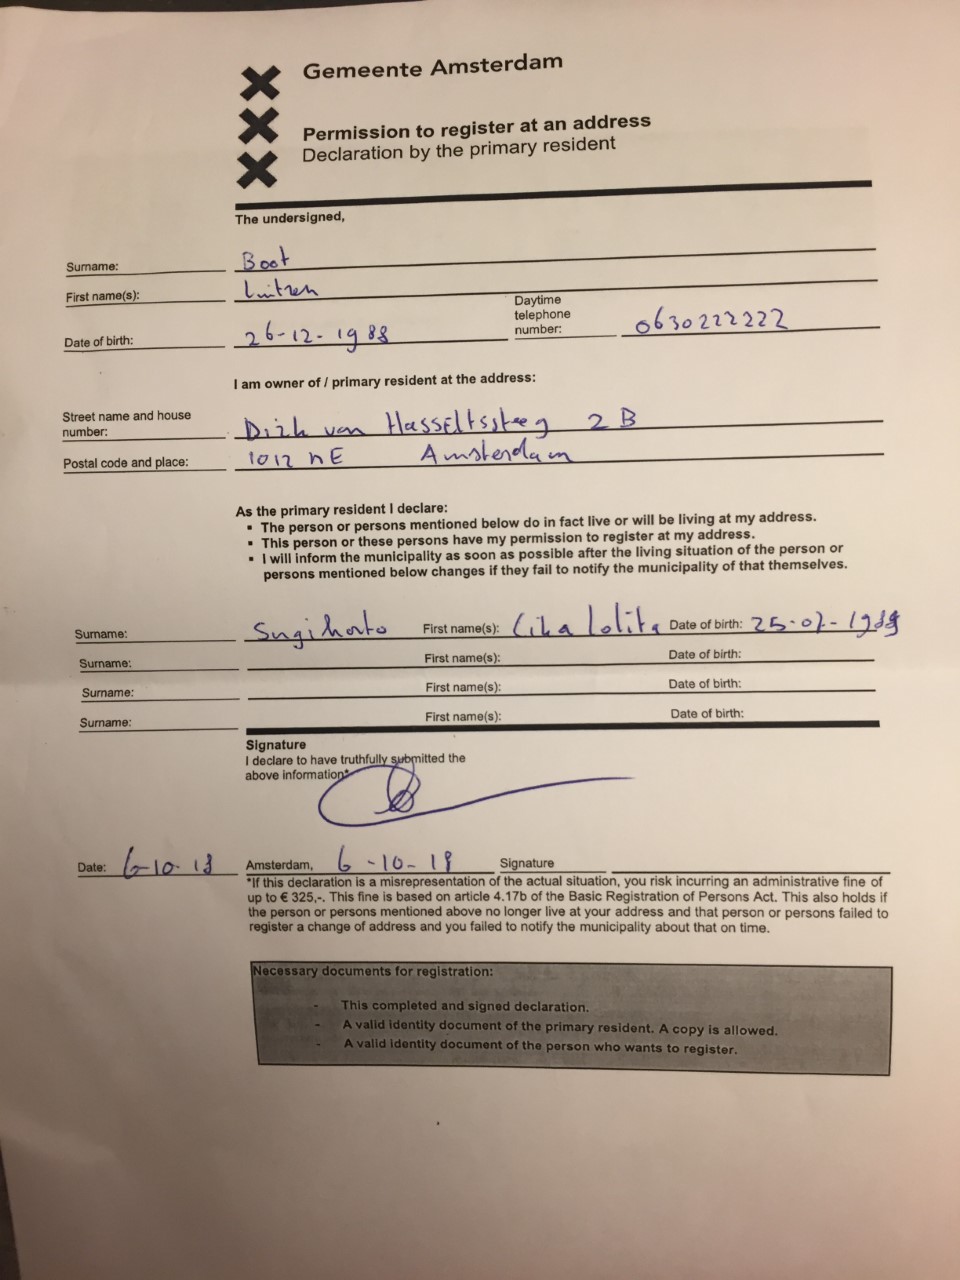 Gemeente Amsterdam
Permission to register at an address
Declaration by the primary resident
The undersigned,
Surname: Boot
First name(s):
Date of birth: 26-12-1988 Daytime telephone number: 0630222222
I am owner of / primary resident at the address:
Street name and house number: Dirk van Hasseltssteeg 2B
Postal code and place: 1012 NE Amsterdam
As the primary resident I declare:
▪ The person or persons mentioned below do in fact live or will be living at my address.
▪ This person or these persons have my permission to register at my address.
▪ I will inform the municipality as soon as possible after the living situation of the person or
persons mentioned below changes if they fail to notify the municipality of that themselves.
Surname: Sugiharto First name(s): Lolita Date of birth:
Surname: First name(s): Date of birth:
Surname: First name(s): Date of birth:
Surname: First name(s): Date of birth:
Signature
I declare to have truthfully submitted the
above information*
Date: 6-10-18 Amsterdam, 6-10-18 Signature
*If this declaration is a misrepresentation of the actual situation, you risk incurring an administrative fine of
up to € 325,-. This fine is based on article 4.17b of the Basic Registration of Persons Act. This also holds if
the person or persons mentioned above no longer live at your address and that person or persons failed to
register a change of address and you failed to notify the municipality about that on time.
Necessary documents for registration:
- This completed and signed declaration.
- A valid identity document of the primary resident. A copy is allowed.
- A valid identity document of the person who wants to register.